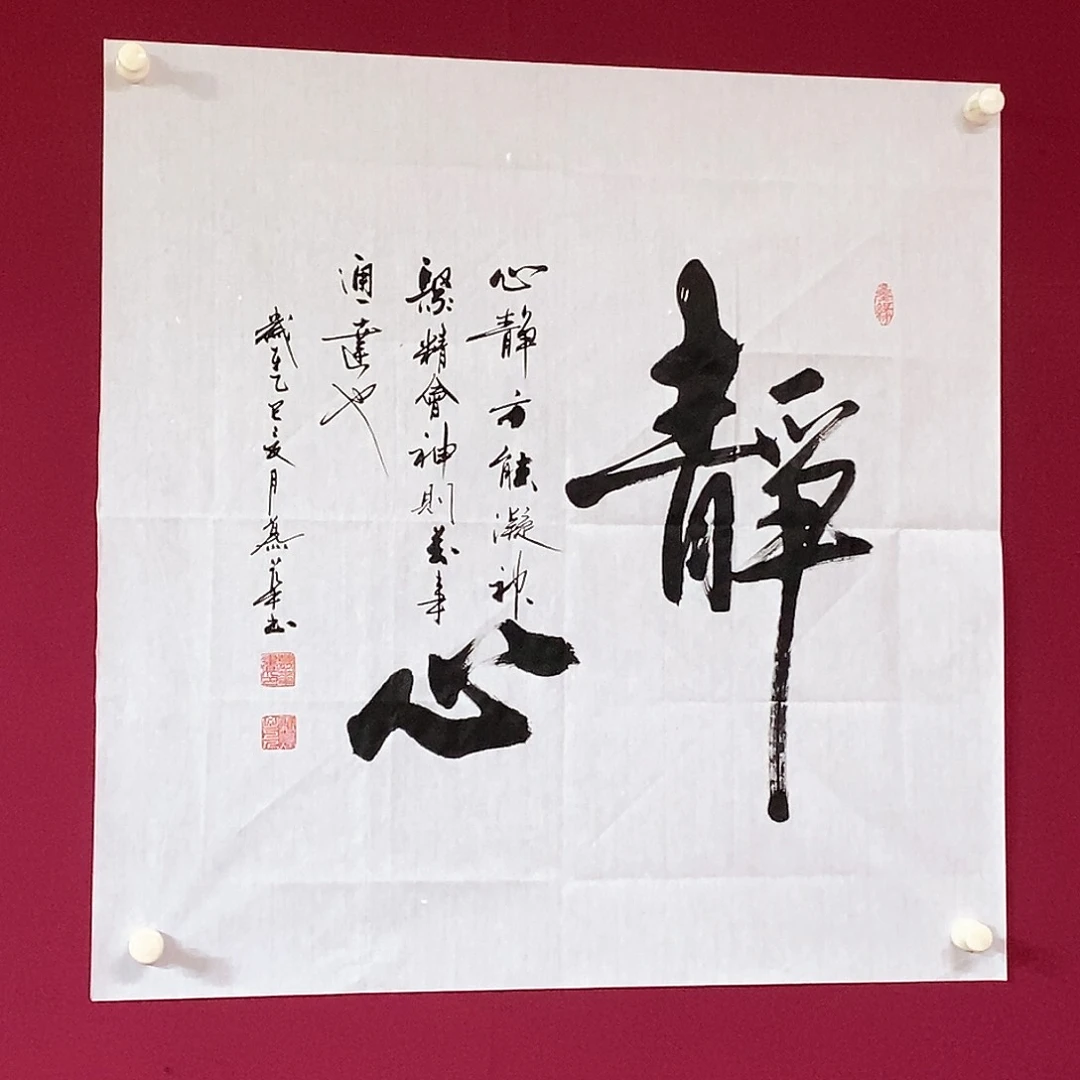 靜
心
心靜方能凝神
聚精會神則萬事
通達也
歲在乙巳夏月燕華书